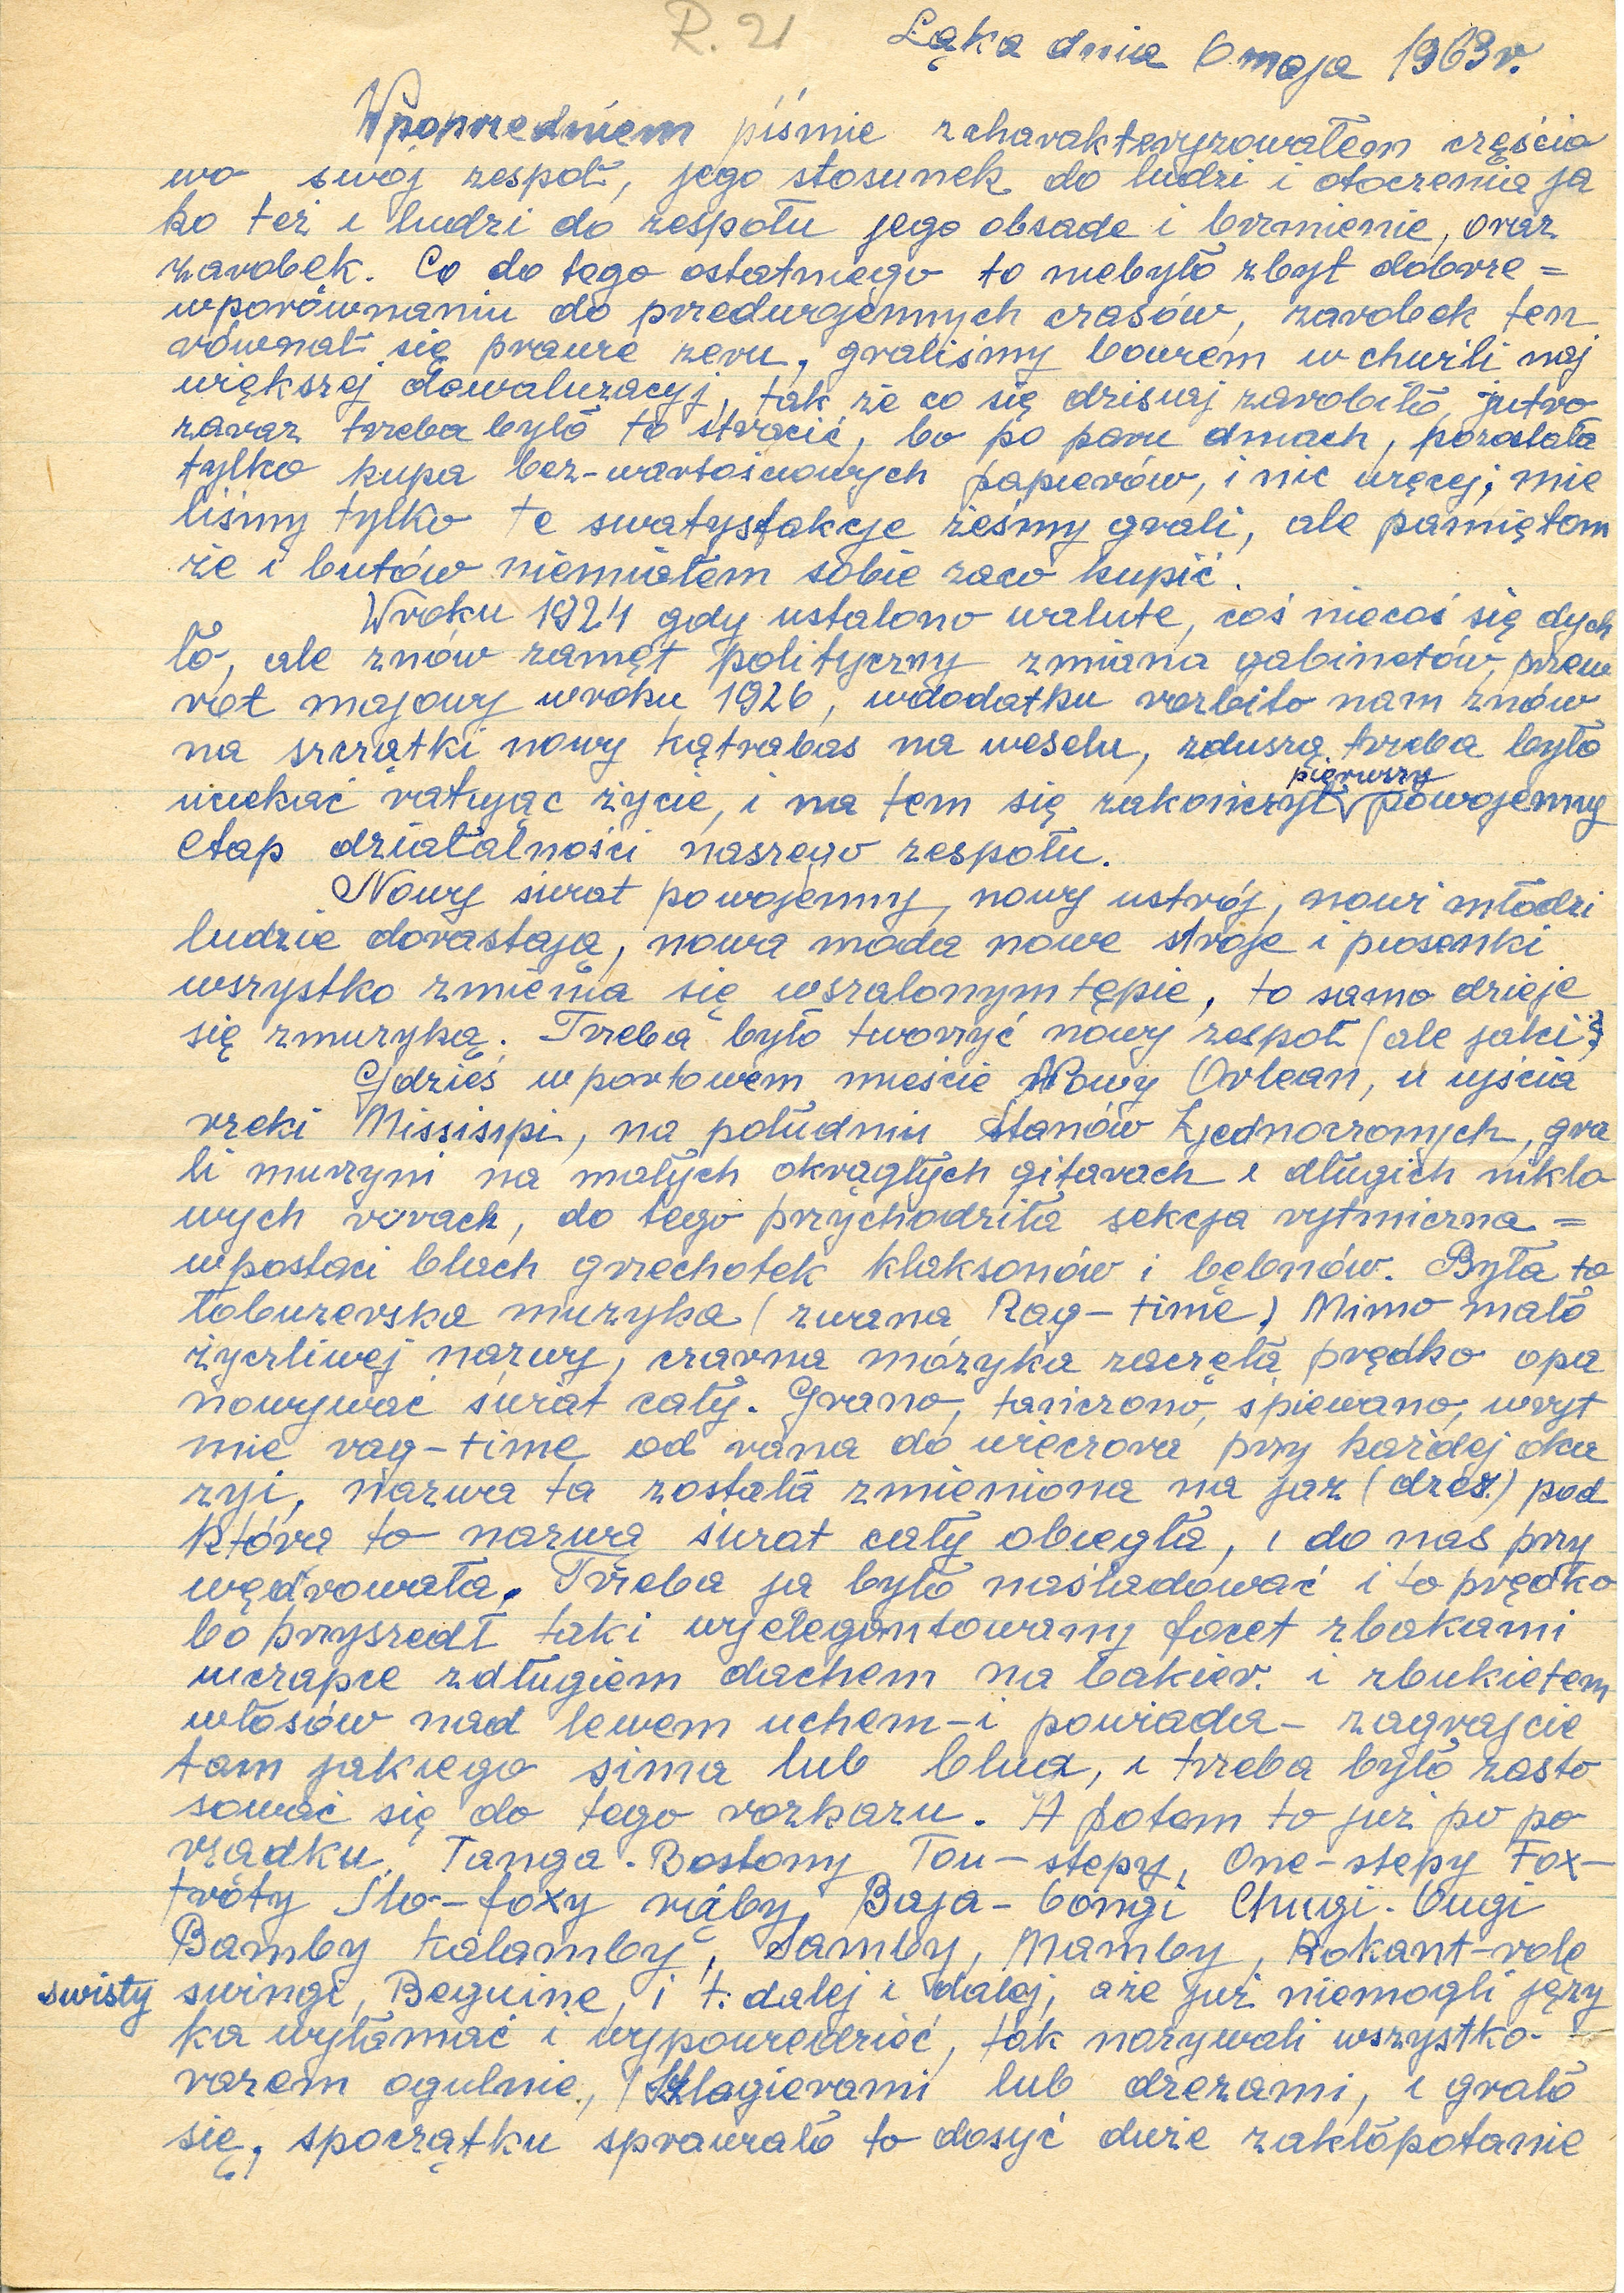 R. 21
Łąka dnia 6 maja 1963 r.
Wpoprzedniem piśmie zcharakteryzowałem częścio
wo swój zespoł, jego stosunek do ludzi i otoczenia ja
ko też i ludzi do zespołu jego obsade i brzmienie, oraz
zarobek. Co do tego ostatniego to niebyło zbyt dobrze =
wporównaniu do przedwojennych czasów, zarobek ten
równał się prawie zeru, graliśmy bowiem w chwili naj
większej dewaluzacyj, tak że co się dzisiaj zarobiło, jutro
zaraz trzeba było to stracić, bo po paru dniach, pozostała
tylko kupa bez-wartościowych papierów, i nic więcej; mie
liśmy tylko te swatysfakcje żeśmy grali, ale pamiętom
że i butów niemiałem sobie zaco kupić.
Wroku 1924 gdy ustalono walute, coś niecoś się dych
ło, ale znów zamęt polityczny zmiana gabinetów, przew
rot majowy wroku 1926, wdodatku rozbito nam znów
na szczątki nowy kątrabas na weselu, zduszą trzeba było
uciekać ratując życie, i na tem się zakończył pierwszy powojenny
etap działalności naszego zespołu.
Nowy świat powojenny, nowy ustrój, nowi młodzi
ludzie dorastają, nowa moda nowe stroje i piosenki
wszystko zmienia się wszalonym tępie, to samo dzieje
się zmuzyką. Trzeba było tworzyć nowy zespoł (ale jaki?)
Gdzieś wportowem mieście Nowy Orlean, u ujścia
rzeki Missisipi, na południu Stanów Zjednoczonych, gra
li murzyni na małych okrągłych gitarach i długich niklo
wych rurach, do tego przychodziła sekcja rytmiczna =
wpostaci blach grzechotek klaksonów i bębnów. Była to
łobuzerska muzyka (zwana Rag-time) Mimo mało
życzliwej nazwy, czarna mózyka zaczęła prędko opa
nowywać świat cały. Grano, tańczono, śpiewano, wryt
mie rag-time od rana do wieczora przy każdej oka
zyi, nazwa ta została zmieniona na jaz (dzez.) pod
która to nazwa świat cały obiegła, i do nas przy
wędrowała. Trzeba ja było naśladować i to prędko
bo przyszedł taki wyelegantowany facet zbakami
wczapce zdługiem dachem na bakier. i zbukietem
włosów nad lewem uchem-i powiada- zagrajcie
tam jakiego sima lub blua, i trzeba było zasto
sować się do tego rozkazu. A potem to już po po
rzadku. Tanga. Bostony Tou-stepy, One-stepy Fox-
tróty Slo-foxy rąby, Baja-bongi Chugi-Bugi
Bamby kalamby, Samby, Mamby, Rokant-role
swisty swingi, Beguine, i t. dalej i dalej, aże już niemogli języ
ka wyłamać i wypowiedzieć, tak nazywali wszystko-
razem ogulnie, Szlagierami lub dzezami, i grało
się, spoczątku sprawiało to dosyć duże zakłopotanie